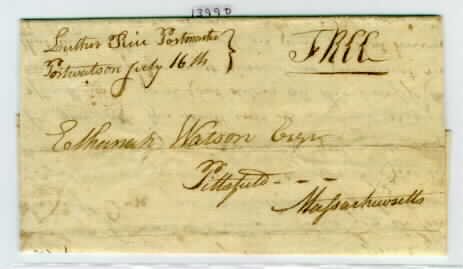 13990
Luther Rice Postmaster
Portwatson July 16th
FREE
Elkanah Watson Esqr
Pittsfield - - -
Massachusetts